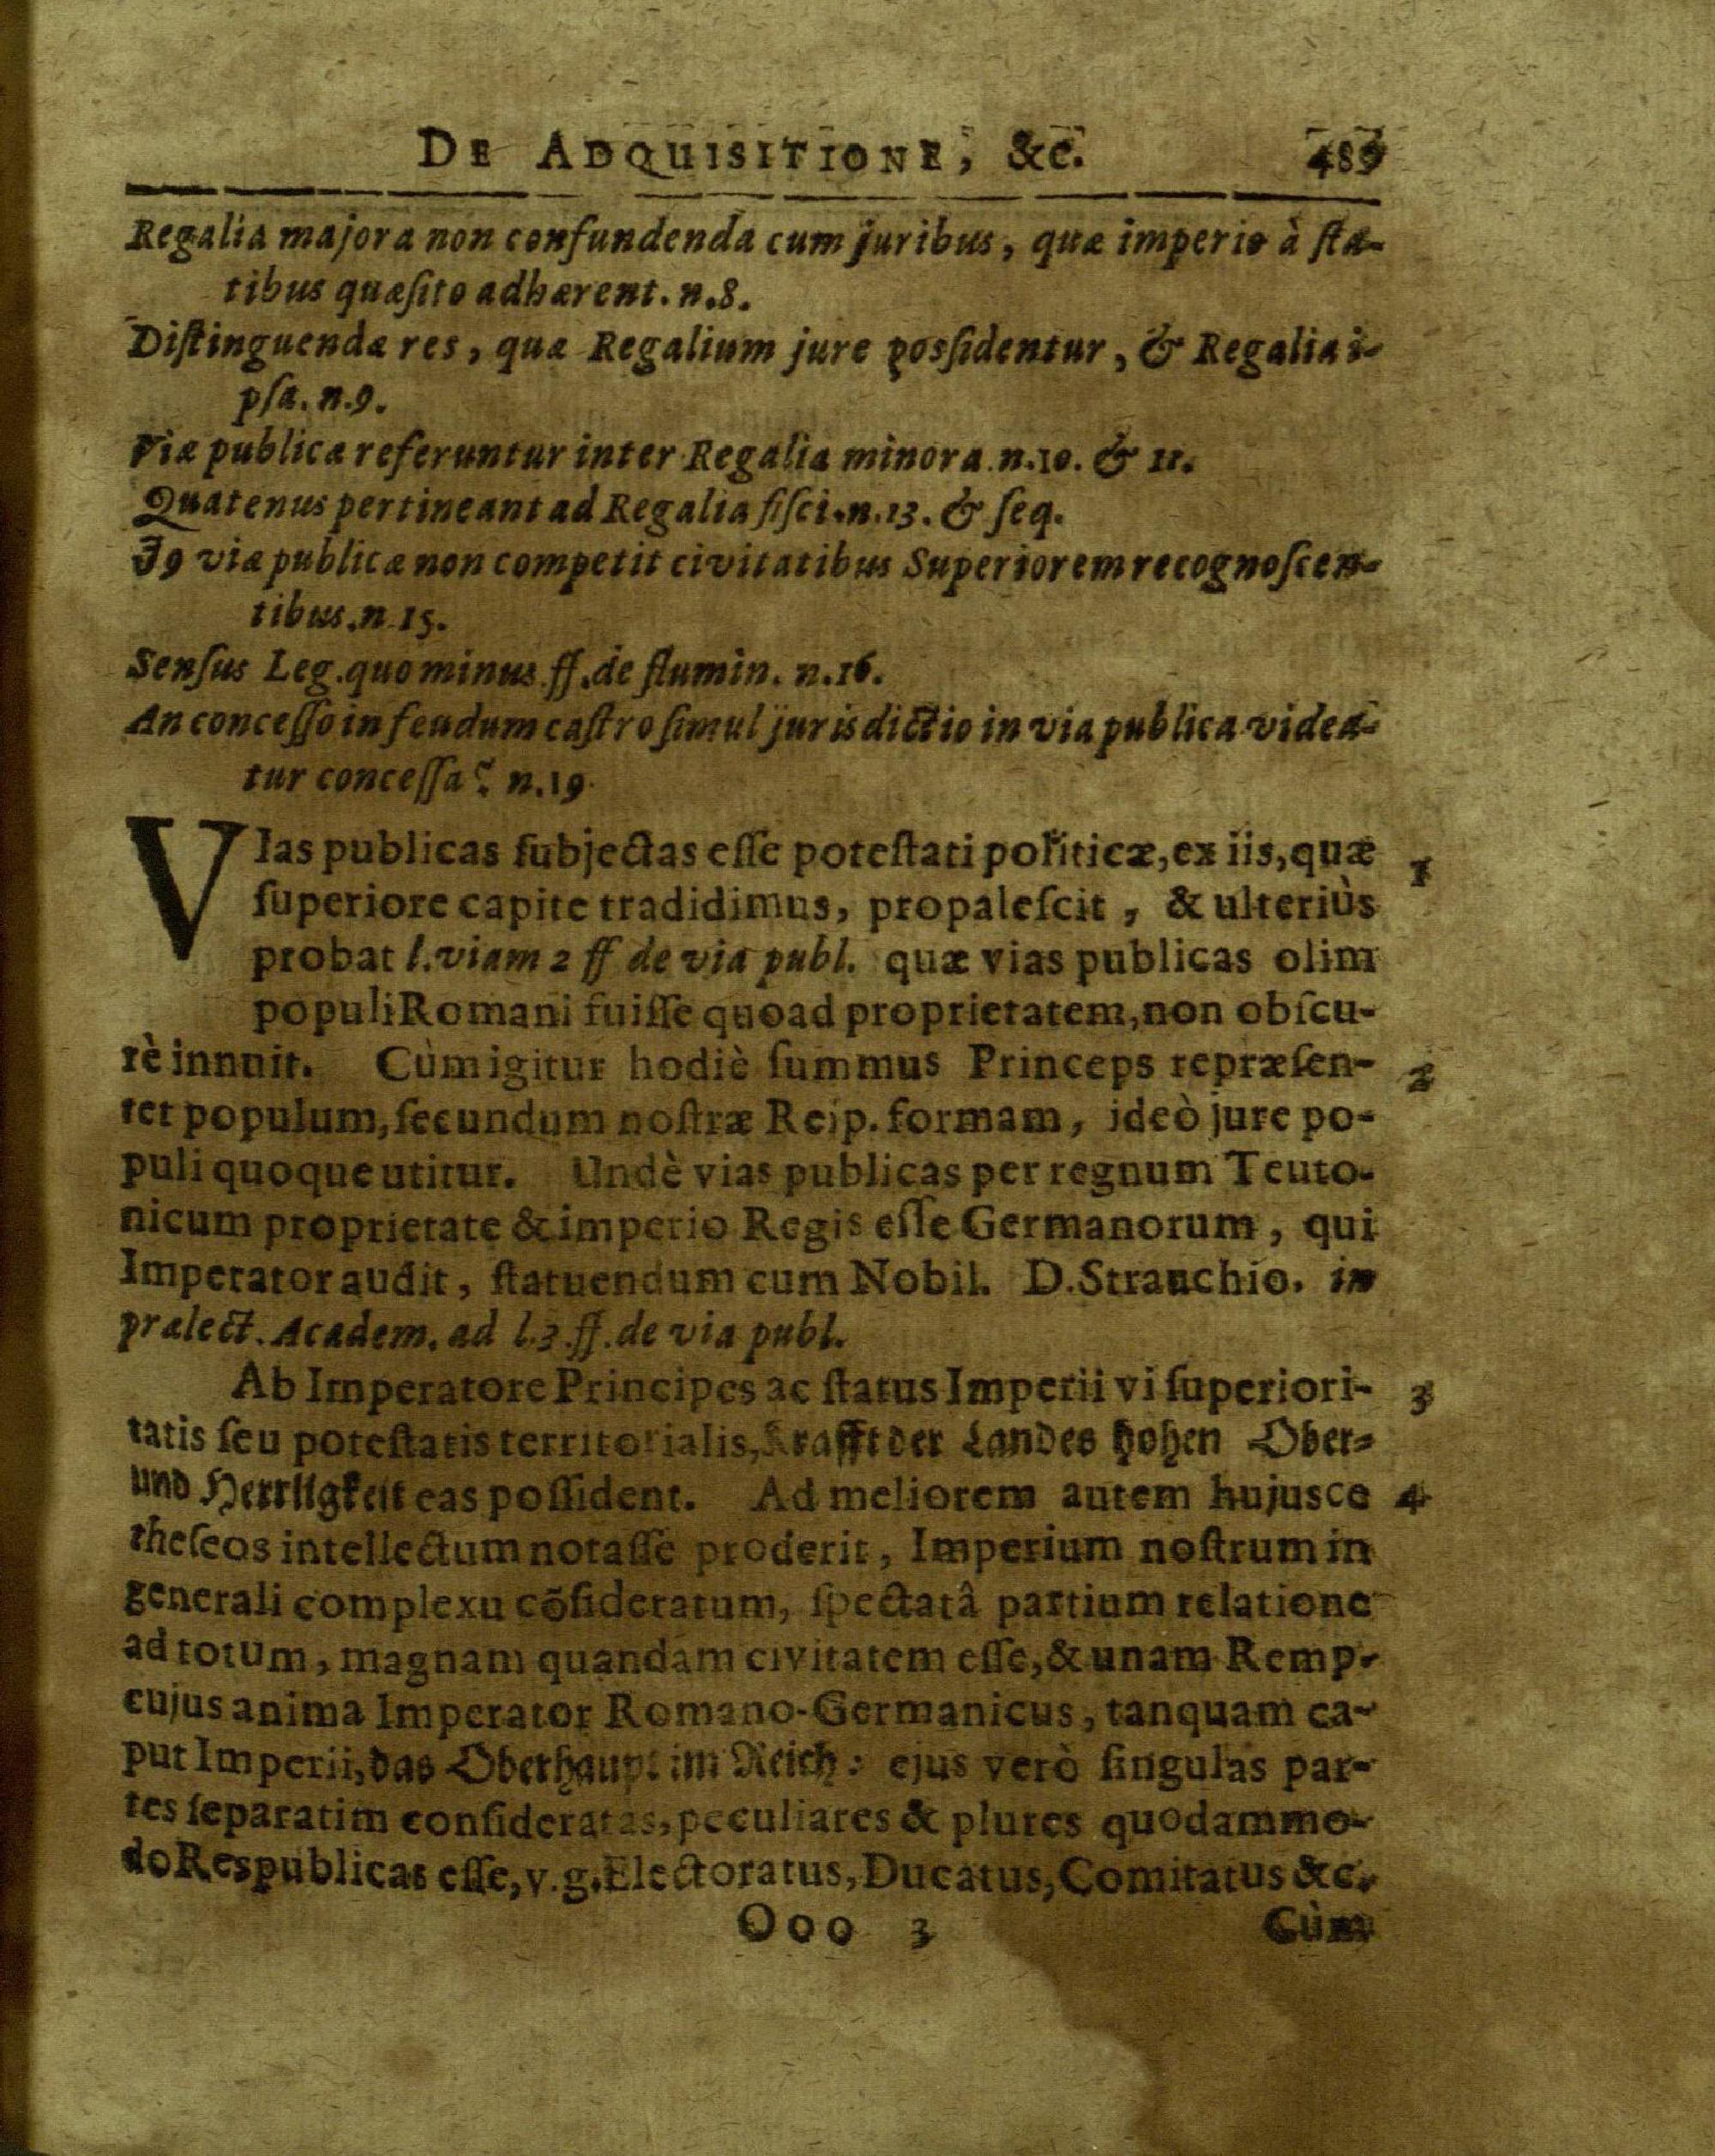 DE ADQUISITIONE, &c. 489
Regalia majora non confundenda cum juribus, quæ imperio à sta-
tibus quæsito adhærent. n.8.
Distinguendæ res, quæ Regalium jure possidentur, & Regalia i-
psa. n.9.
Viæ publicæ referuntur inter Regalia minora n.10. & 11.
Quatenus pertineant ad Regalia fisci. n.13. & seq.
Jꝰ viæ publicæ non competit civitatibus Superiorem recognoscen-
tibus. n 15.
Sensus Leg. quo minus ff. de flumin. n.16.
An concesso in feudum castro simul jurisdictio in via publica videa-
tur concessa? n.19
VIas publicas subjectas esse potestati politicæ, ex iis, quæ 1
superiore capite tradidimus, propalescit, & ulteriùs
probat l. viam 2 ff de via publ. quæ vias publicas olim
populi Romani fuisse quoad proprietatem, non obscu-
rè innuit. Cùm igitur hodiè summus Princeps repræsen- 2
tet populum, secundum nostræ Reip. formam, ideò jure po-
puli quoque utitur. Undè vias publicas per regnum Teuto-
nicum proprietate & imperio Regis esse Germanorum, qui
Imperator audit, statuendum cum Nobil. D. Strauchio. in
prælect. Academ. ad l.3.ff. de via publ.
Ab Imperatore Principes ac status Imperii vi superiori- 3
tatis seu potestatis territorialis, Krafft der Landes hohen Ober-
und Herrligkeit eas possident. Ad meliorem autem hujusce 4
theseos intellectum notasse proderit, Imperium nostrum in
generali complexu cõsideratum, spectatâ partium relatione
ad totum, magnam quandam civitatem esse, & unam Remp.
cujus anima Imperator Romano-Germanicus, tanquam ca-
put Imperii, das Oberhaupt im Reich: ejus verò singulas par-
tes separatim consideratas, peculiares & plures quodammo-
do Respublicas esse, v.g. Electoratus, Ducatus, Comitatus &c.
Ooo 3 Cùm